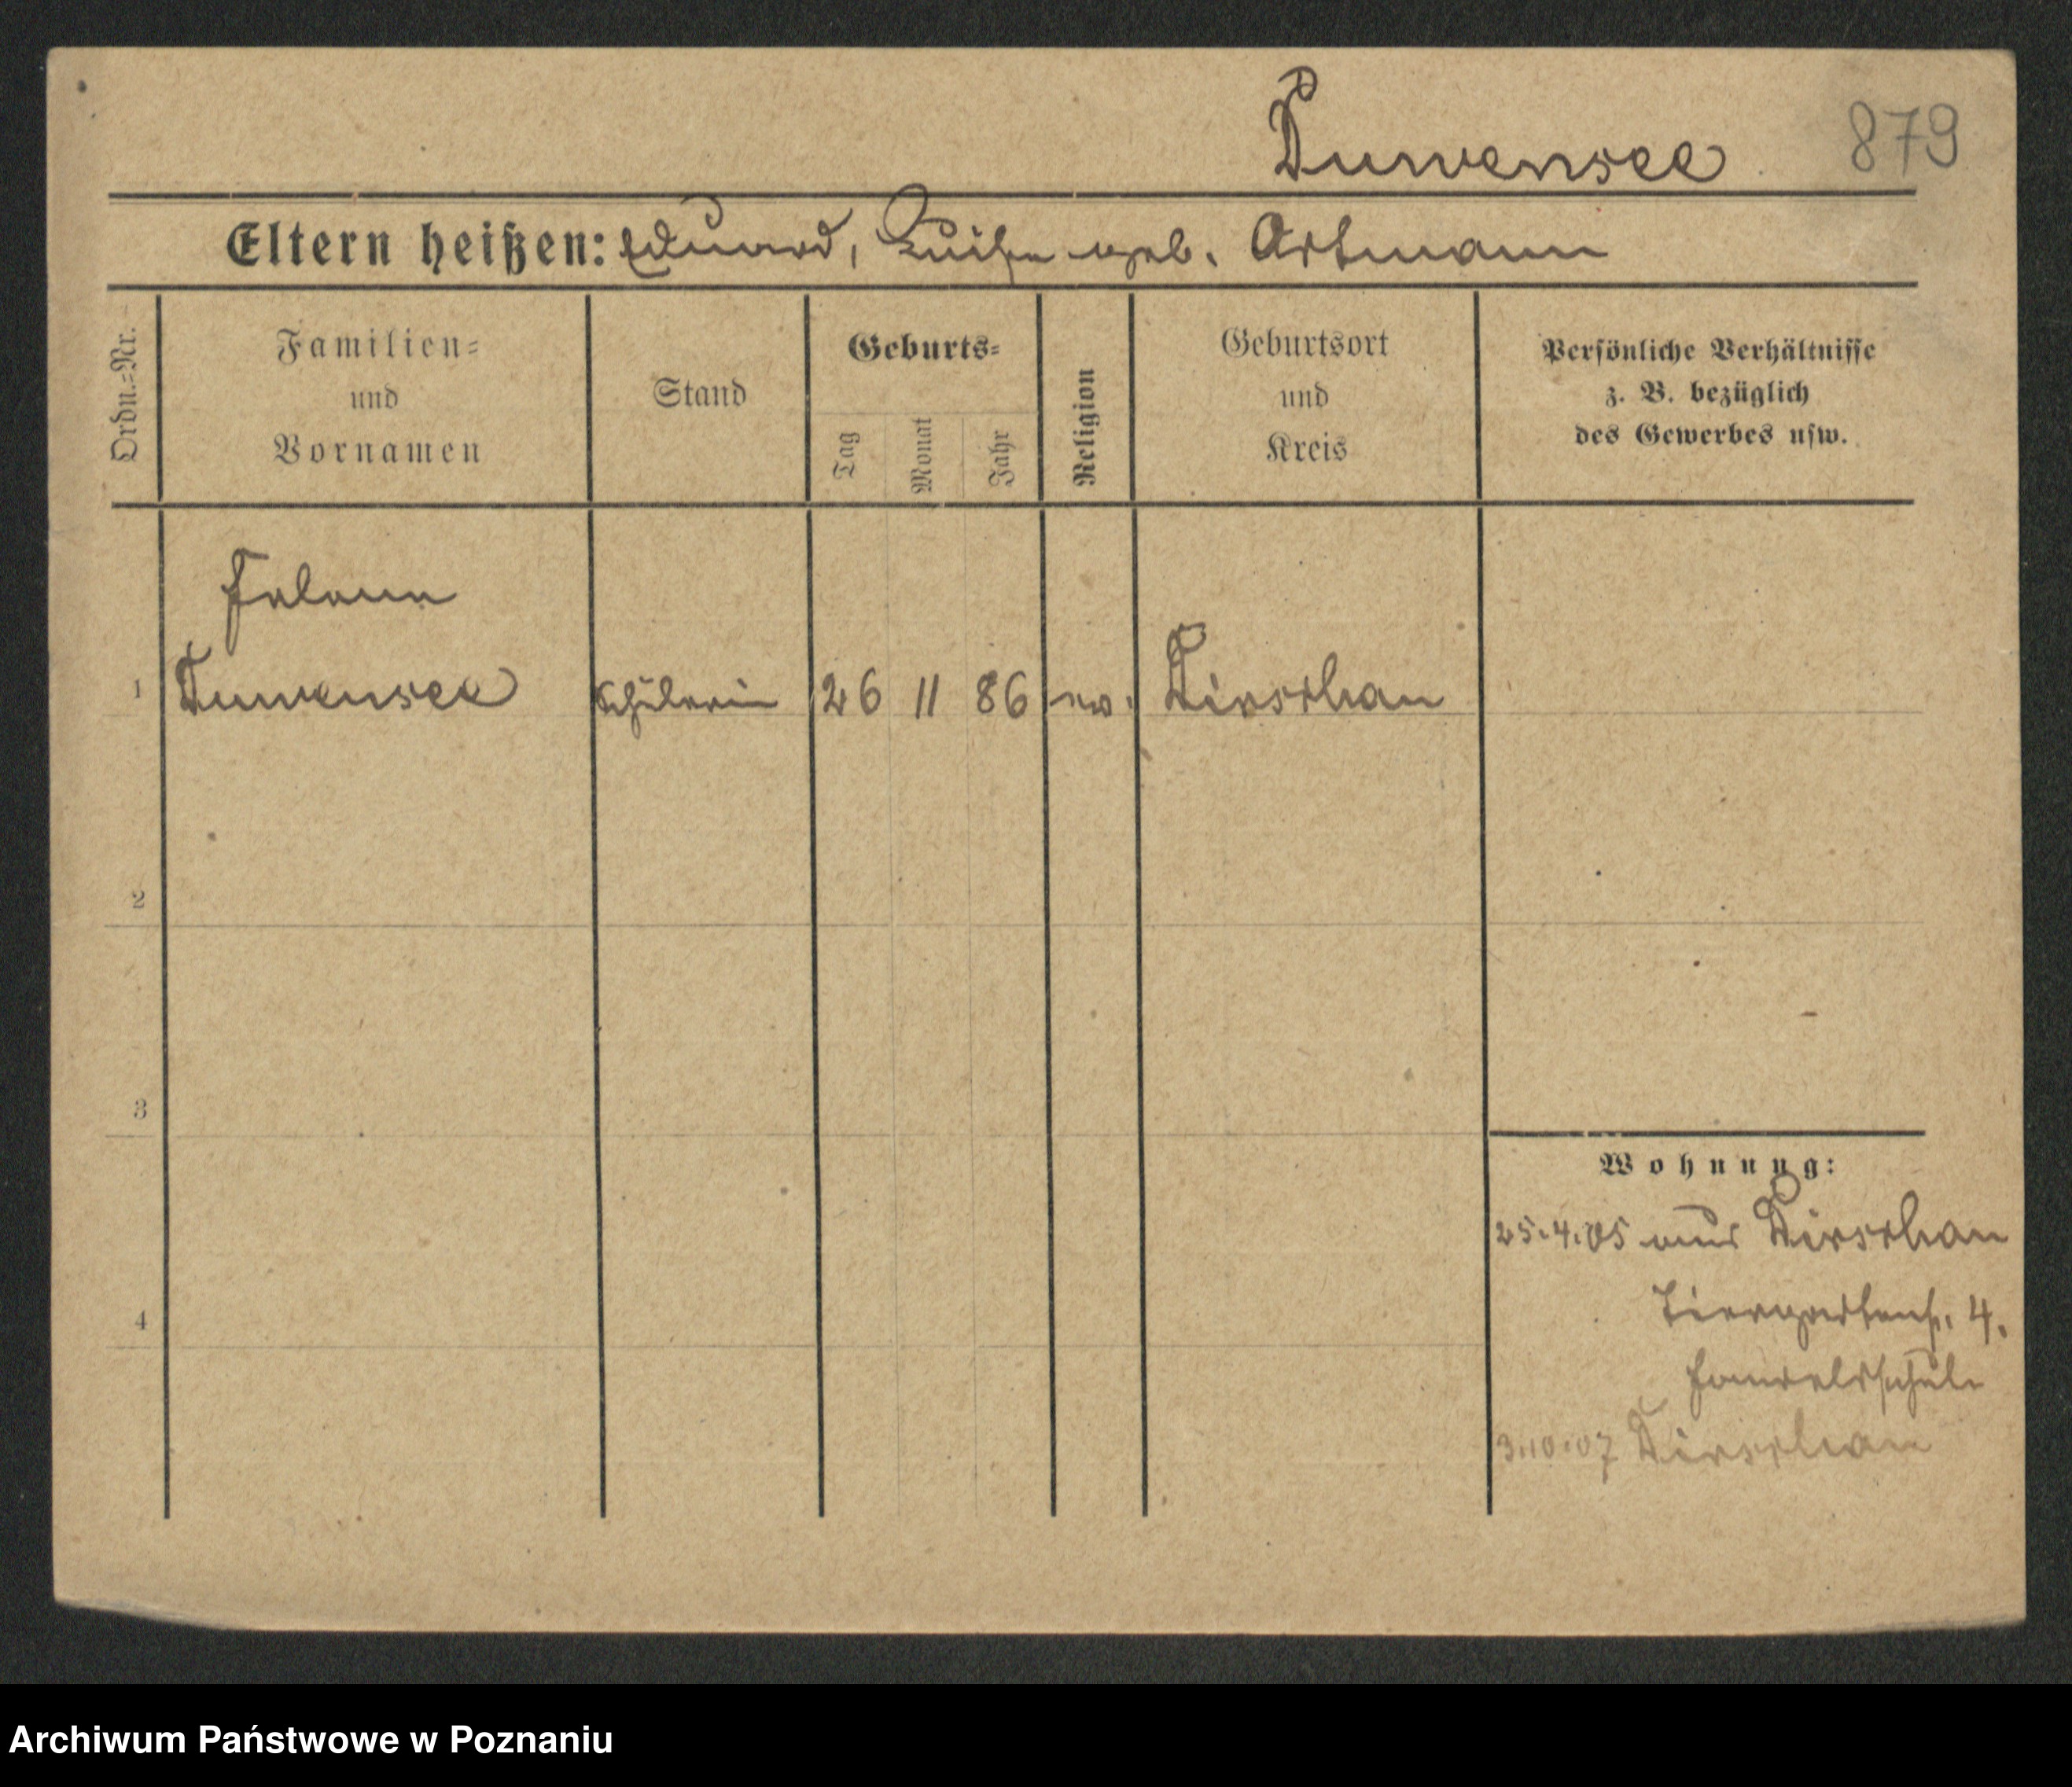 Duwensee 879
Eltern heißen: Eduard, Luise geb. Artmann
Ordn.=Nr.
Familien=
und
Vornamen
Stand
Geburts=
Tag
Monat
Jahr
Religion
Geburtsort
und
Kreis
Persönliche Verhältnisse
z. B. bezüglich
des Gewerbes usw.
Helene
1 Duwensee Schülerin 26 11 86 ev. Dirschau
2
3
4
Wohnung:
25.4.05 aus Dirschau
Tiergartenstr. 4.
Handelsschule
3.10.07 Dirschau
Archiwum Państwowe w Poznaniu